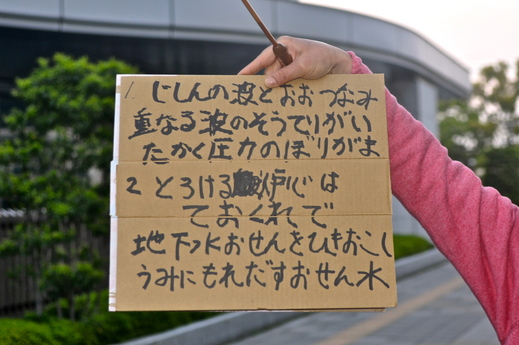 1. じしんの波とおおつなみ
重なる波のそうてりがい
たかく圧力のぼりがま
2 とろける炉心は
ておくれで
地下水おせんをひきおこし
うみにもれだすおせん水